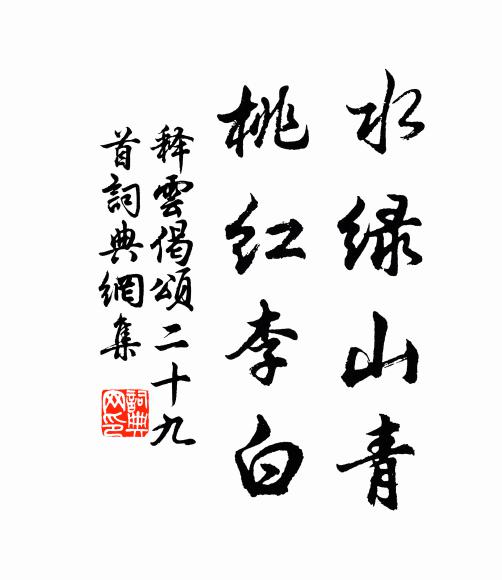 水绿山青
桃红李白
释雲偈頌二十九
首詞典網集
詞典
网印